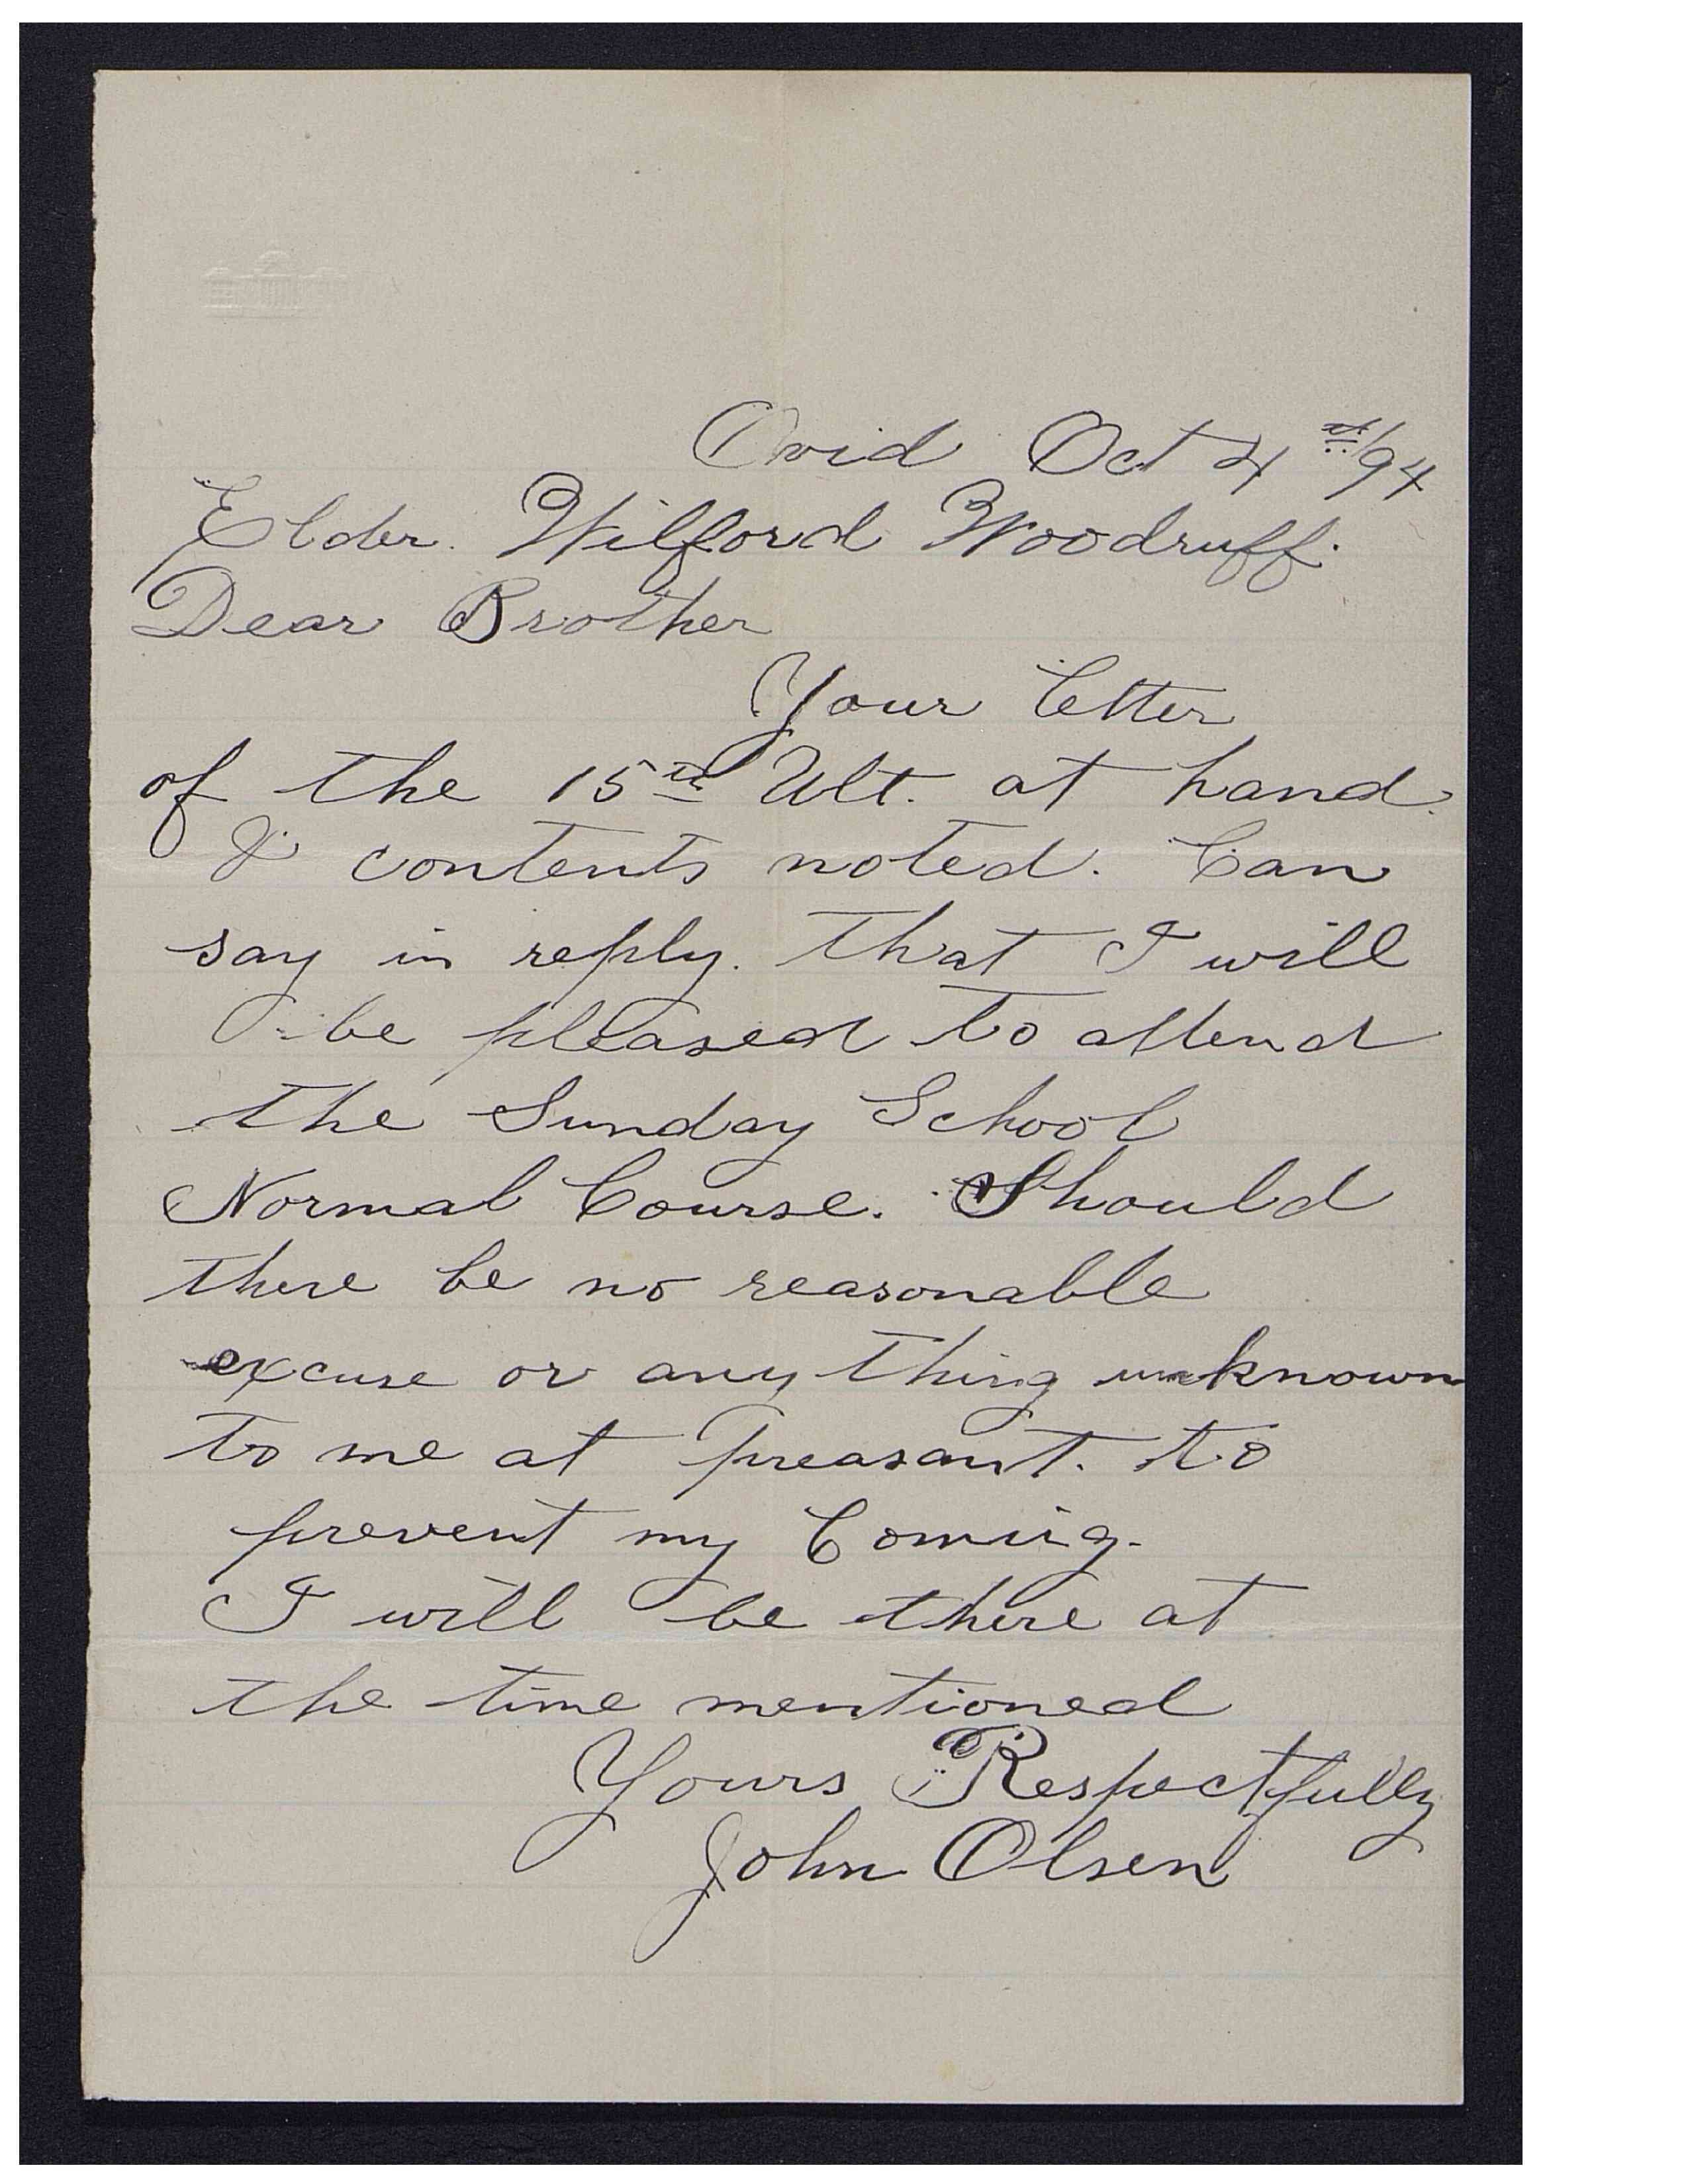 Ovid Oct 4th/94
Elder. Wilford Woodruff.
Dear Brother
Your letter
of the 15th Ult. at hand.
& contents noted. Can
say in reply. that I will
be pleased to attend
the Sunday School
Normal Course. Should
there be no reasonable
excuse or any thing unknown
to me at preasant. to
prevent my Coming.
I will be there at
the time mentioned
Yours Respectfully
John Olsen